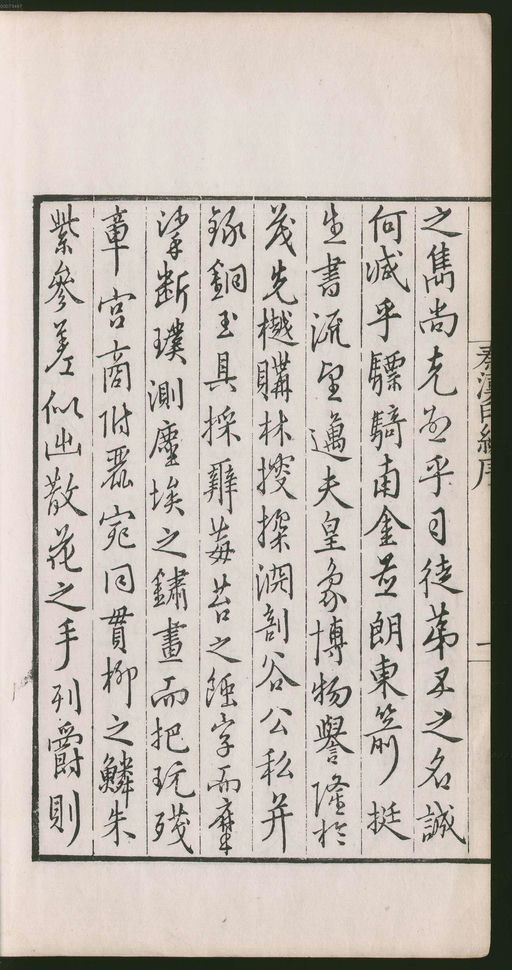 之雋尚克
乎司徒第五之名誠
何減乎驃騎南金並朗東箭挺
生書流望邁夫皇象博物譽隆於
茂先樾購林搜探淵剖谷公私并
錄銅玉具採辨莓苔之蝕字而摩
挲斷璞測塵埃之鏽畫而把玩殘
章宮商附麗宛同貫柳之鱗朱
紫參差似出散花之手列爵則
秦漢印統序
一